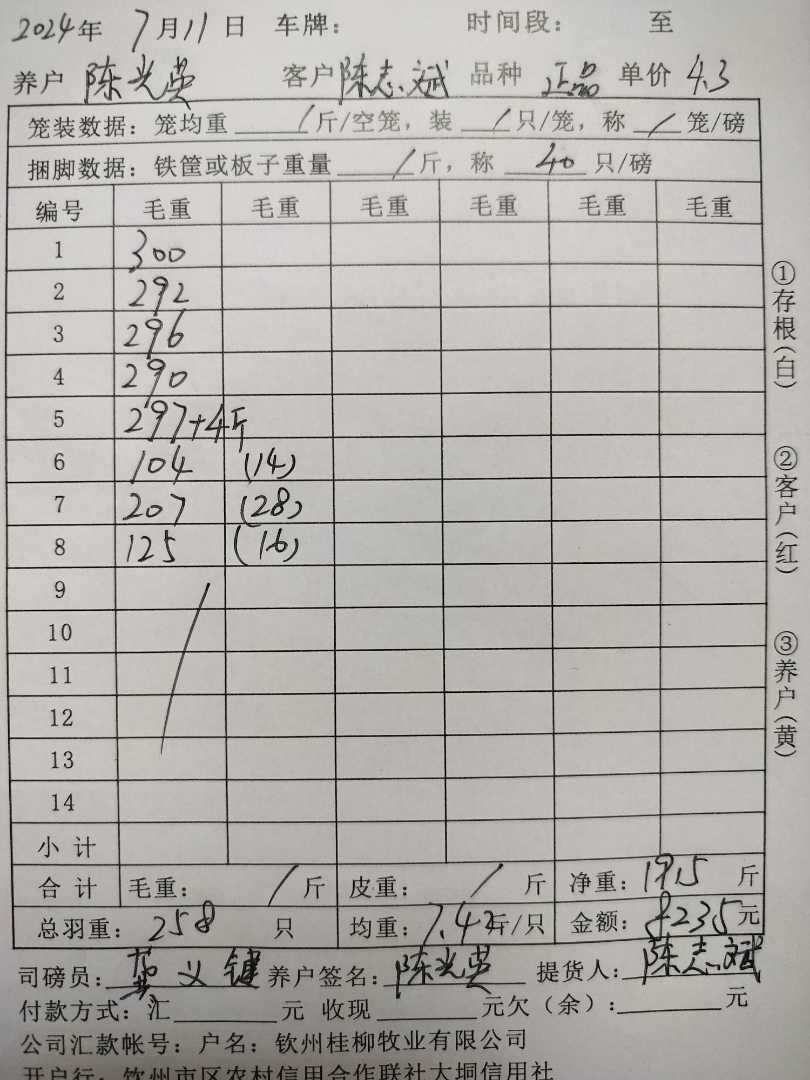 2024年 7月11日 车牌： 时间段： 至
养户 陈光英 客户 陈志斌 品种 正品 单价 4.3
笼装数据：笼均重 / 斤/空笼，装 / 只/笼，称 / 笼/磅
捆脚数据：铁筐或板子重量 / 斤，称 40 只/磅
编号 毛重 毛重 毛重 毛重 毛重 毛重
1 300
2 292
3 296
4 290
5 297+4斤
6 104 (14)
7 207 (28)
8 125 (16)
9
10
11
12
13
14
小计
合计 毛重： / 斤 皮重： / 斤 净重：1915 斤
总羽重：258 只 均重：7.42斤/只 金额：8235元
司磅员：龚义键 养户签名：陈光英 提货人：陈志斌
付款方式：汇 元 收现 元欠（余）： 元
公司汇款帐号：户名：钦州桂柳牧业有限公司
开户行：钦州市区农村信用合作联社大垌信用社
①存根（白）
②客户（红）
③养户（黄）